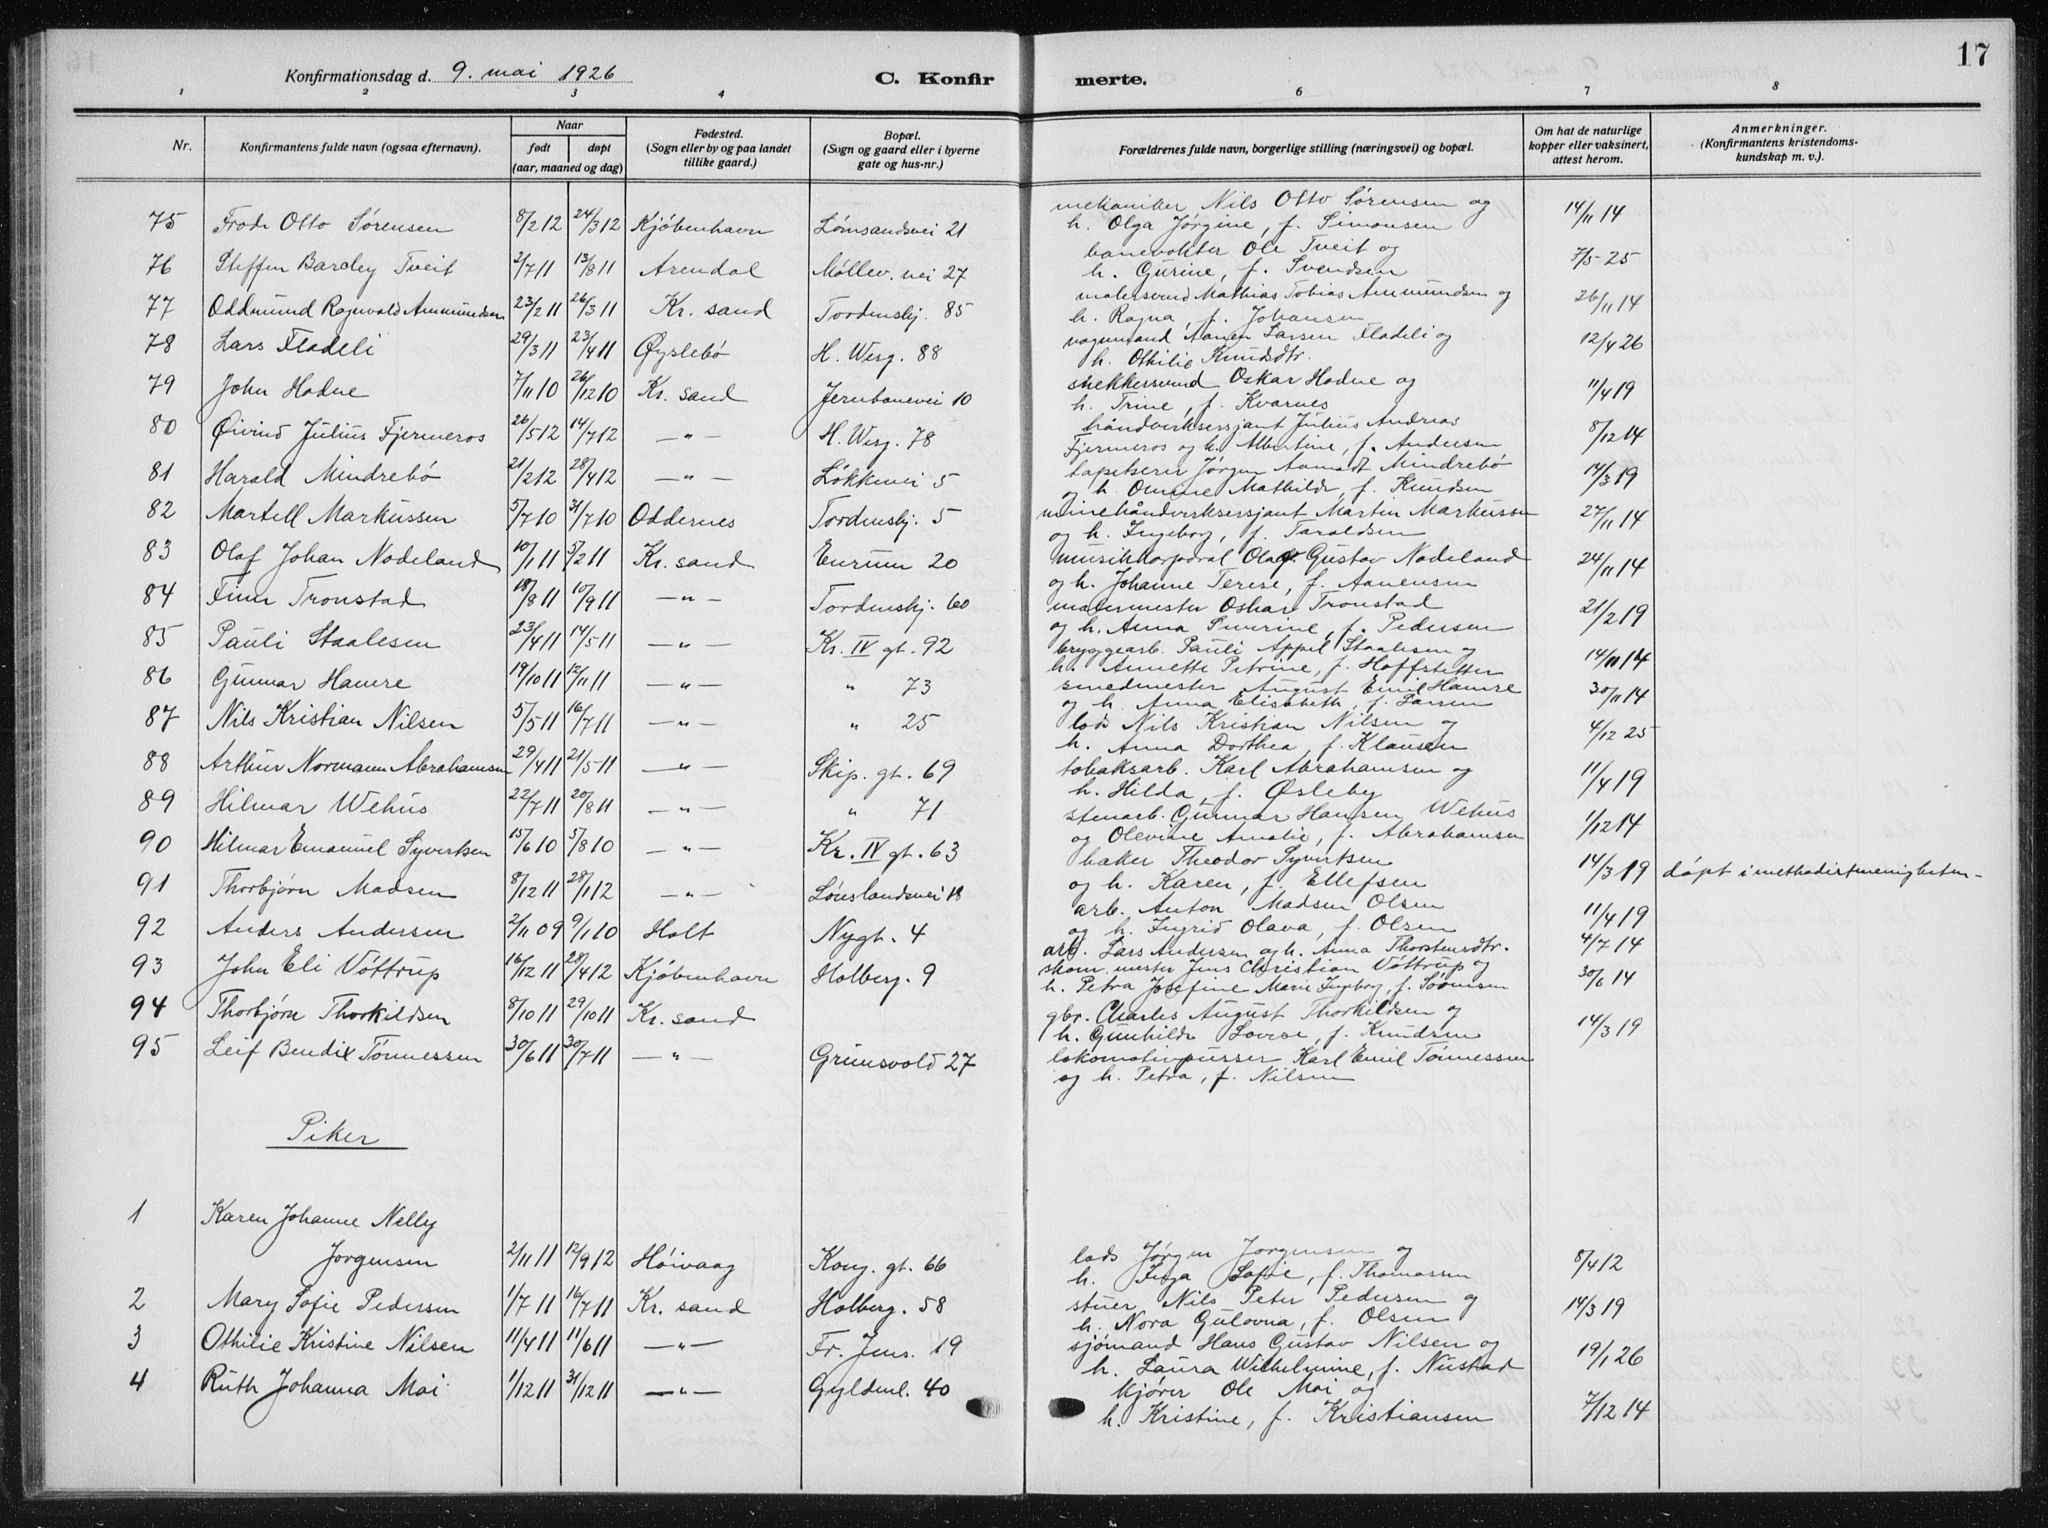 17
Konfirmationsdag d. 9. mai 1926 C. Konfirmerte.
1 2 3 4 6 7 8
Nr. Konfirmantens fulde navn (ogsaa efternavn). Naar født døpt (aar, maaned og dag) Fødested. (Sogn eller by og paa landet tillike gaard.) Bopæl. (Sogn og gaard eller i byerne gate og hus-nr.) Forældrenes fulde navn, borgerlige stilling (næringsvei) og bopæl. Om hat de naturlige kopper eller vaksinert, attest herom. Anmerkninger. (Konfirmantens kristendomskundskap m. v.).
75 Frode Otto Sørensen 8/2 12 24/3 12 Kjøbenhavn Lømsandsvei 21 mekaniker Nils Otto Sørensen og h. Olga Jørgine, f. Simonsen 14/11 14
76 Steffen Barcley Tveit 2/7 11 13/8 11 Arendal Møllev. vei 27 banevokter Ole Tveit og h. Gurine, f. Svendsen 7/5-25
77 Oddmund Ragnvald Ammundsen 23/2 11 26/3 11 Kr. sand Tordenskj. 85 malersvend Mathias Tobias Ammundsen og h. Ragna, f. Johansen 26/11 14
78 Lars Fladeli 29/3 11 23/4 11 Øyslebö H. Werg. 88 vognmand Aanen Larsen Fladeli og h. Othilie Knudsdtr. 12/4 26
79 John Hodne 7/11 10 26/12 10 Kr. sand Jernbanevei 10 snekkersvend Oskar Hodne og h. Trine, f. Kvarnes 11/4 19
80 Øivind Julius Fjermeros 26/5 12 14/7 12 -"- H. Werg. 78 håndverksersjant Julius Andreas Fjermeros og h. Albertine, f. Andersen 8/12 14
81 Harald Mindrebö 21/2 12 28/4 12 -"- Løkkevei 5 tapetserer Jørgen Aamodt Mindrebö og h. Omine Mathilde, f. Knudsen 14/3 19
82 Martell Markussen 5/7 10 31/7 10 Oddernes Tordenskj. 5 minehåndverksersjant Martin Markussen og h. Ingeborg, f. Taraldsen 27/11 14
83 Olaf Johan Nodeland 10/1 11 5/2 11 Kr. sand Enrum 20 musikkorporal Olaf Gustav Nodeland og h. Johanne Terese, f. Aanensen 24/11 14
84 Finn Tronstad 18/8 11 10/9 11 -"- Tordenskj. 60 malermester Oskar Tronstad og h. Anna Severine, f. Pedersen 21/2 19
85 Pauli Staalesen 23/4 11 14/5 11 -"- Kr. IV gt. 92 bryggearb. Pauli Appel Staalesen og h. Annette Petrine, f. Hoffstetter 14/11 14
86 Gunnar Hamre 19/10 11 12/11 11 -"- " 73 smedmester August Emil Hamre og h. Anna Elisabeth, f. Larsen 30/11 14
87 Nils Kristian Nilsen 5/5 11 16/7 11 -"- " 25 lods Nils Kristian Nilsen og h. Anna Dorthea, f. Klausen 4/12 25
88 Arthur Normann Abrahamsen 29/4 11 21/5 11 -"- Skip. gt. 69 tobaksarb. Karl Abrahamsen og h. Hilda, f. Øsleby 11/4 19
89 Hilmar Wehus 22/7 11 20/8 11 -"- " 71 stenarb. Gunnar Hansen Wehus og Olevine Amalie, f. Abrahamsen 1/12 14
90 Hilmar Emanuel Syvertsen 15/6 10 5/8 10 -"- Kr. IV gt. 63 baker Theodor Syvertsen og h. Karen, f. Ellefsen 14/3 19 døpt i methodistmenigheten
91 Thorbjørn Madsen 8/12 11 28/1 12 -"- Lønslandsvei 18 arb. Anton Madsen Olsen og h. Ingrid Olava, f. Olsen 11/4 19
92 Anders Andersen 2/11 09 9/1 10 Holt Nygt. 4 arb. Lars Andersen og h. Anna Thorstensdtr. 4/7 14
93 John Eli Vöttrup 16/12 11 28/4 12 Kjöbenhavn Holberg. 9 skom. mester Jens Christian Vöttrup og h. Petra Josefine Marie Ingeborg, f. Sörensen 30/6 14
94 Thorbjørn Thorkildsen 8/10 11 29/10 11 Kr. sand gbr. Charles August Thorkildsen og h. Gunhilde Lovise, f. Knudsen 14/3 19
95 Leif Bendix Tönnessen 30/6 11 30/7 11 -"- Grimsvold 27 lokomotivpusser Karl Emil Tönnessen og h. Petra, f. Nilsen
Piker
1 Karen Johanne Nelly Jorgensen 2/11 11 12/9 12 Høivaag Kong. gt. 66 lods Jørgen Jorgensen og h. Inga Sofie, f. Thomassen 8/4 12
2 Mary Sofie Pedersen 1/7 11 16/7 11 Kr. sand Holberg. 58 stuer Nils Peter Pedersen og h. Nora Gulovna, f. Olsen 14/3 19
3 Othilie Kristine Nilsen 11/4 11 11/6 11 -"- Fr. Jens. 19 sjömand Hans Gustav Nilsen og h. Laura Wilhelmine, f. Nustad 19/1 26
4 Ruth Johanna Moi 1/12 11 31/12 11 -"- Gyldenl. 40 kjører Ole Moi og h. Kristine, f. Kristiansen 7/12 14